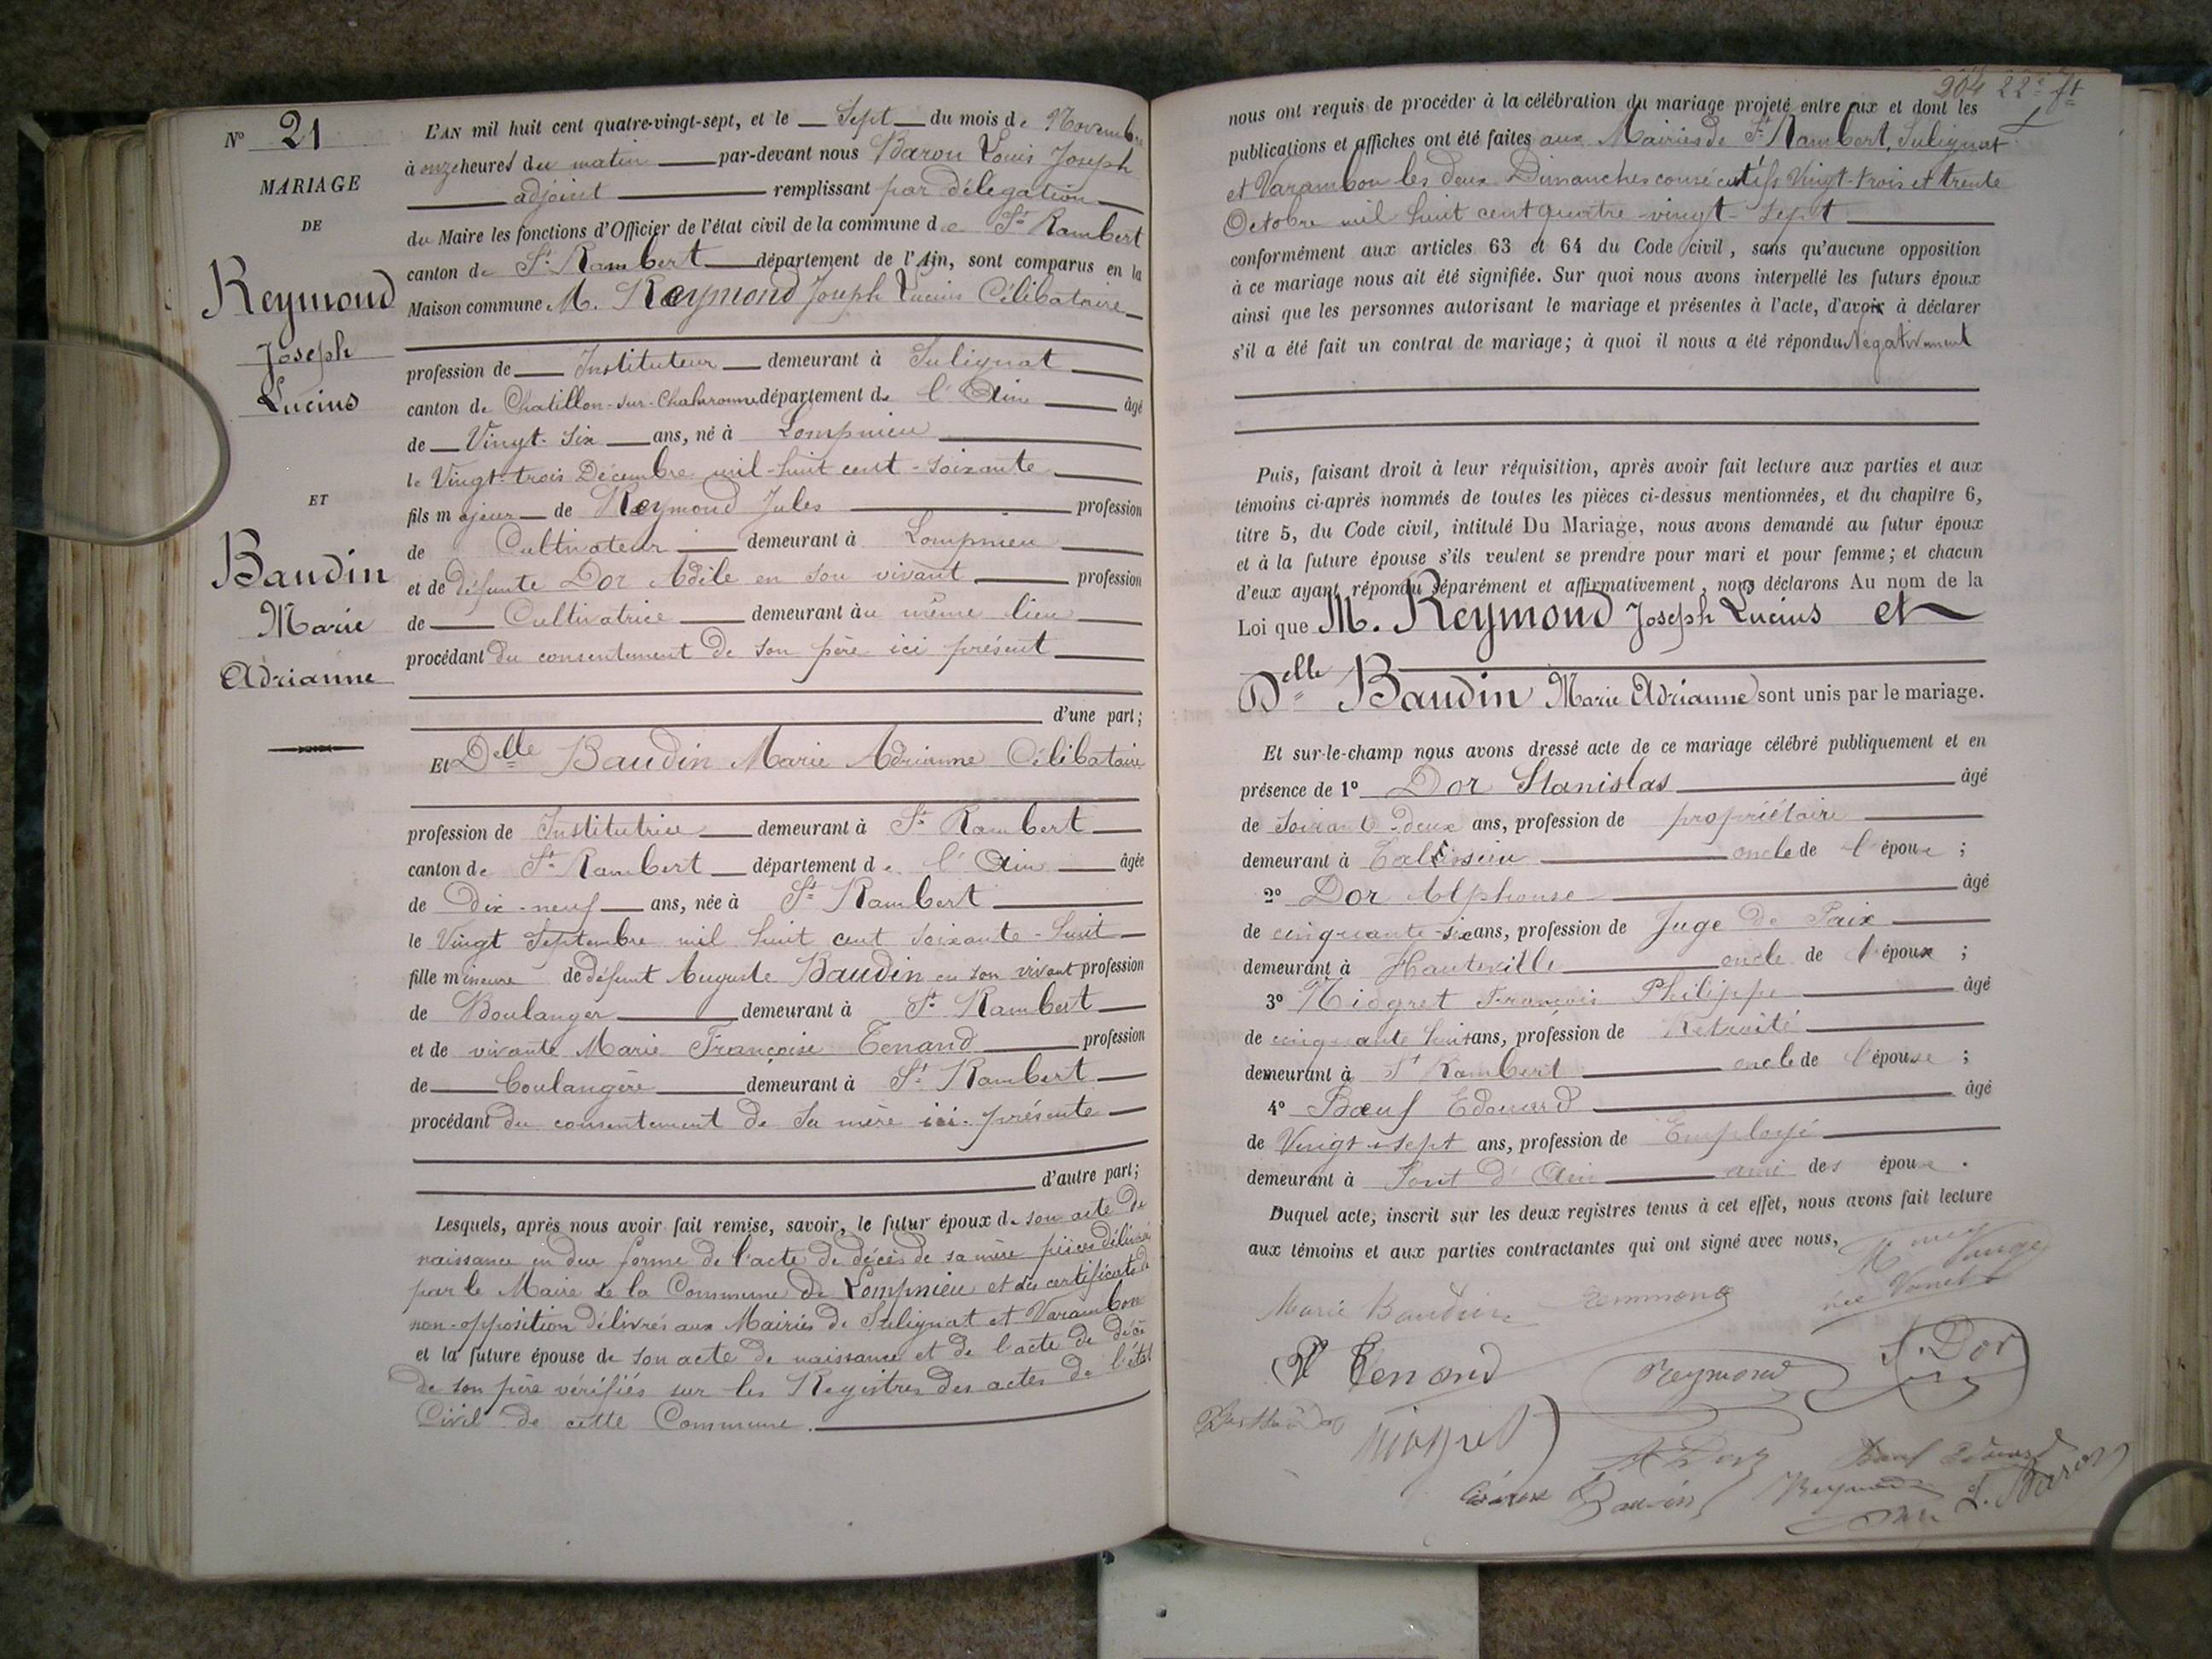 N° 21
MARIAGE
DE
Reymond
Joseph
Lucius
ET
Baudin
Marie
Adrianne
L'AN mil huit cent quatre-vingt-sept, et le Sept du mois de Novembre
à onze heures du matin par-devant nous Baron Louis Joseph
adjoint remplissant par délégation
du Maire les fonctions d'Officier de l'état civil de la commune de St Rambert
canton de St Rambert département de l'Ain, sont comparus en la
Maison commune M. Reymond Joseph Lucius Célibataire
profession de Instituteur demeurant à Sulignat
canton de Chatillon-sur-Chalaronne département de l'Ain âgé
de Vingt-six ans, né à Lompnieu
le Vingt-trois Décembre mil-huit cent-soixante
fils majeur de Reymond Jules profession
de Cultivateur demeurant à Lompnieu
et de défunte Dor Adèle en son vivant profession
de Cultivatrice demeurant au même lieu
procédant du consentement de son père ici présent
d'une part;
Et Delle Baudin Marie Adrianne Célibataire
profession de Institutrice demeurant à St Rambert
canton de St Rambert département de l'Ain âgée
de dix-neuf ans, née à St Rambert
le Vingt Septembre mil huit cent soixante-huit
fille mineure de défunt Auguste Baudin en son vivant profession
de Boulanger demeurant à St Rambert
et de vivante Marie Françoise Tenand profession
de boulangère demeurant à St Rambert
procédant du consentement de sa mère ici présente
d'autre part;
Lesquels, après nous avoir fait remise, savoir, le futur époux de son acte de
naissance en due forme de l'acte de décès de sa mère pièces délivrées
par le Maire de la Commune de Lompnieu et des certificats de
non-opposition délivrés aux Mairies de Sulignat et Varambon
et la future épouse de son acte de naissance et de l'acte de décès
de son père vérifiés sur les Registres des actes de l'état
Civil de cette Commune.
204 22e ft
nous ont requis de procéder à la célébration du mariage projeté entre eux et dont les
publications et affiches ont été faites aux Mairies de St Rambert, Sulignat
et Varambon les deux Dimanches consécutifs Vingt-trois et trente
Octobre mil huit cent quatre-vingt-sept
conformément aux articles 63 et 64 du Code civil, sans qu'aucune opposition
à ce mariage nous ait été signifiée. Sur quoi nous avons interpellé les futurs époux
ainsi que les personnes autorisant le mariage et présentes à l'acte, d'avoir à déclarer
s'il a été fait un contrat de mariage; à quoi il nous a été répondu Négativement
Puis, faisant droit à leur réquisition, après avoir fait lecture aux parties et aux
témoins ci-après nommés de toutes les pièces ci-dessus mentionnées, et du chapitre 6,
titre 5, du Code civil, intitulé Du Mariage, nous avons demandé au futur époux
et à la future épouse s'ils veulent se prendre pour mari et pour femme; et chacun
d'eux ayant répondu séparément et affirmativement, nous déclarons Au nom de la
Loi que M. Reymond Joseph Lucius et
Delle Baudin Marie Adrianne sont unis par le mariage.
Et sur-le-champ nous avons dressé acte de ce mariage célébré publiquement et en
présence de 1° Dor Stanislas âgé
de soixante-deux ans, profession de propriétaire
demeurant à Talissieu oncle de l'époux ;
2° Dor Alphonse âgé
de cinquante-six ans, profession de Juge de Paix
demeurant à Hauteville oncle de l'époux ;
3° Niogret François Philippe âgé
de cinquante huit ans, profession de Retraité
demeurant à St Rambert oncle de l'épouse ;
4° Bœuf Edouard âgé
de Vingt-sept ans, profession de Employé
demeurant à Pont d'Ain ami des époux .
Duquel acte, inscrit sur les deux registres tenus à cet effet, nous avons fait lecture
aux témoins et aux parties contractantes qui ont signé avec nous,
Marie Baudin
Tenand
Reymond
S. Dor
Niogret
A Dor
Bœuf Edouard
Baudin
Reymond
L. Baron